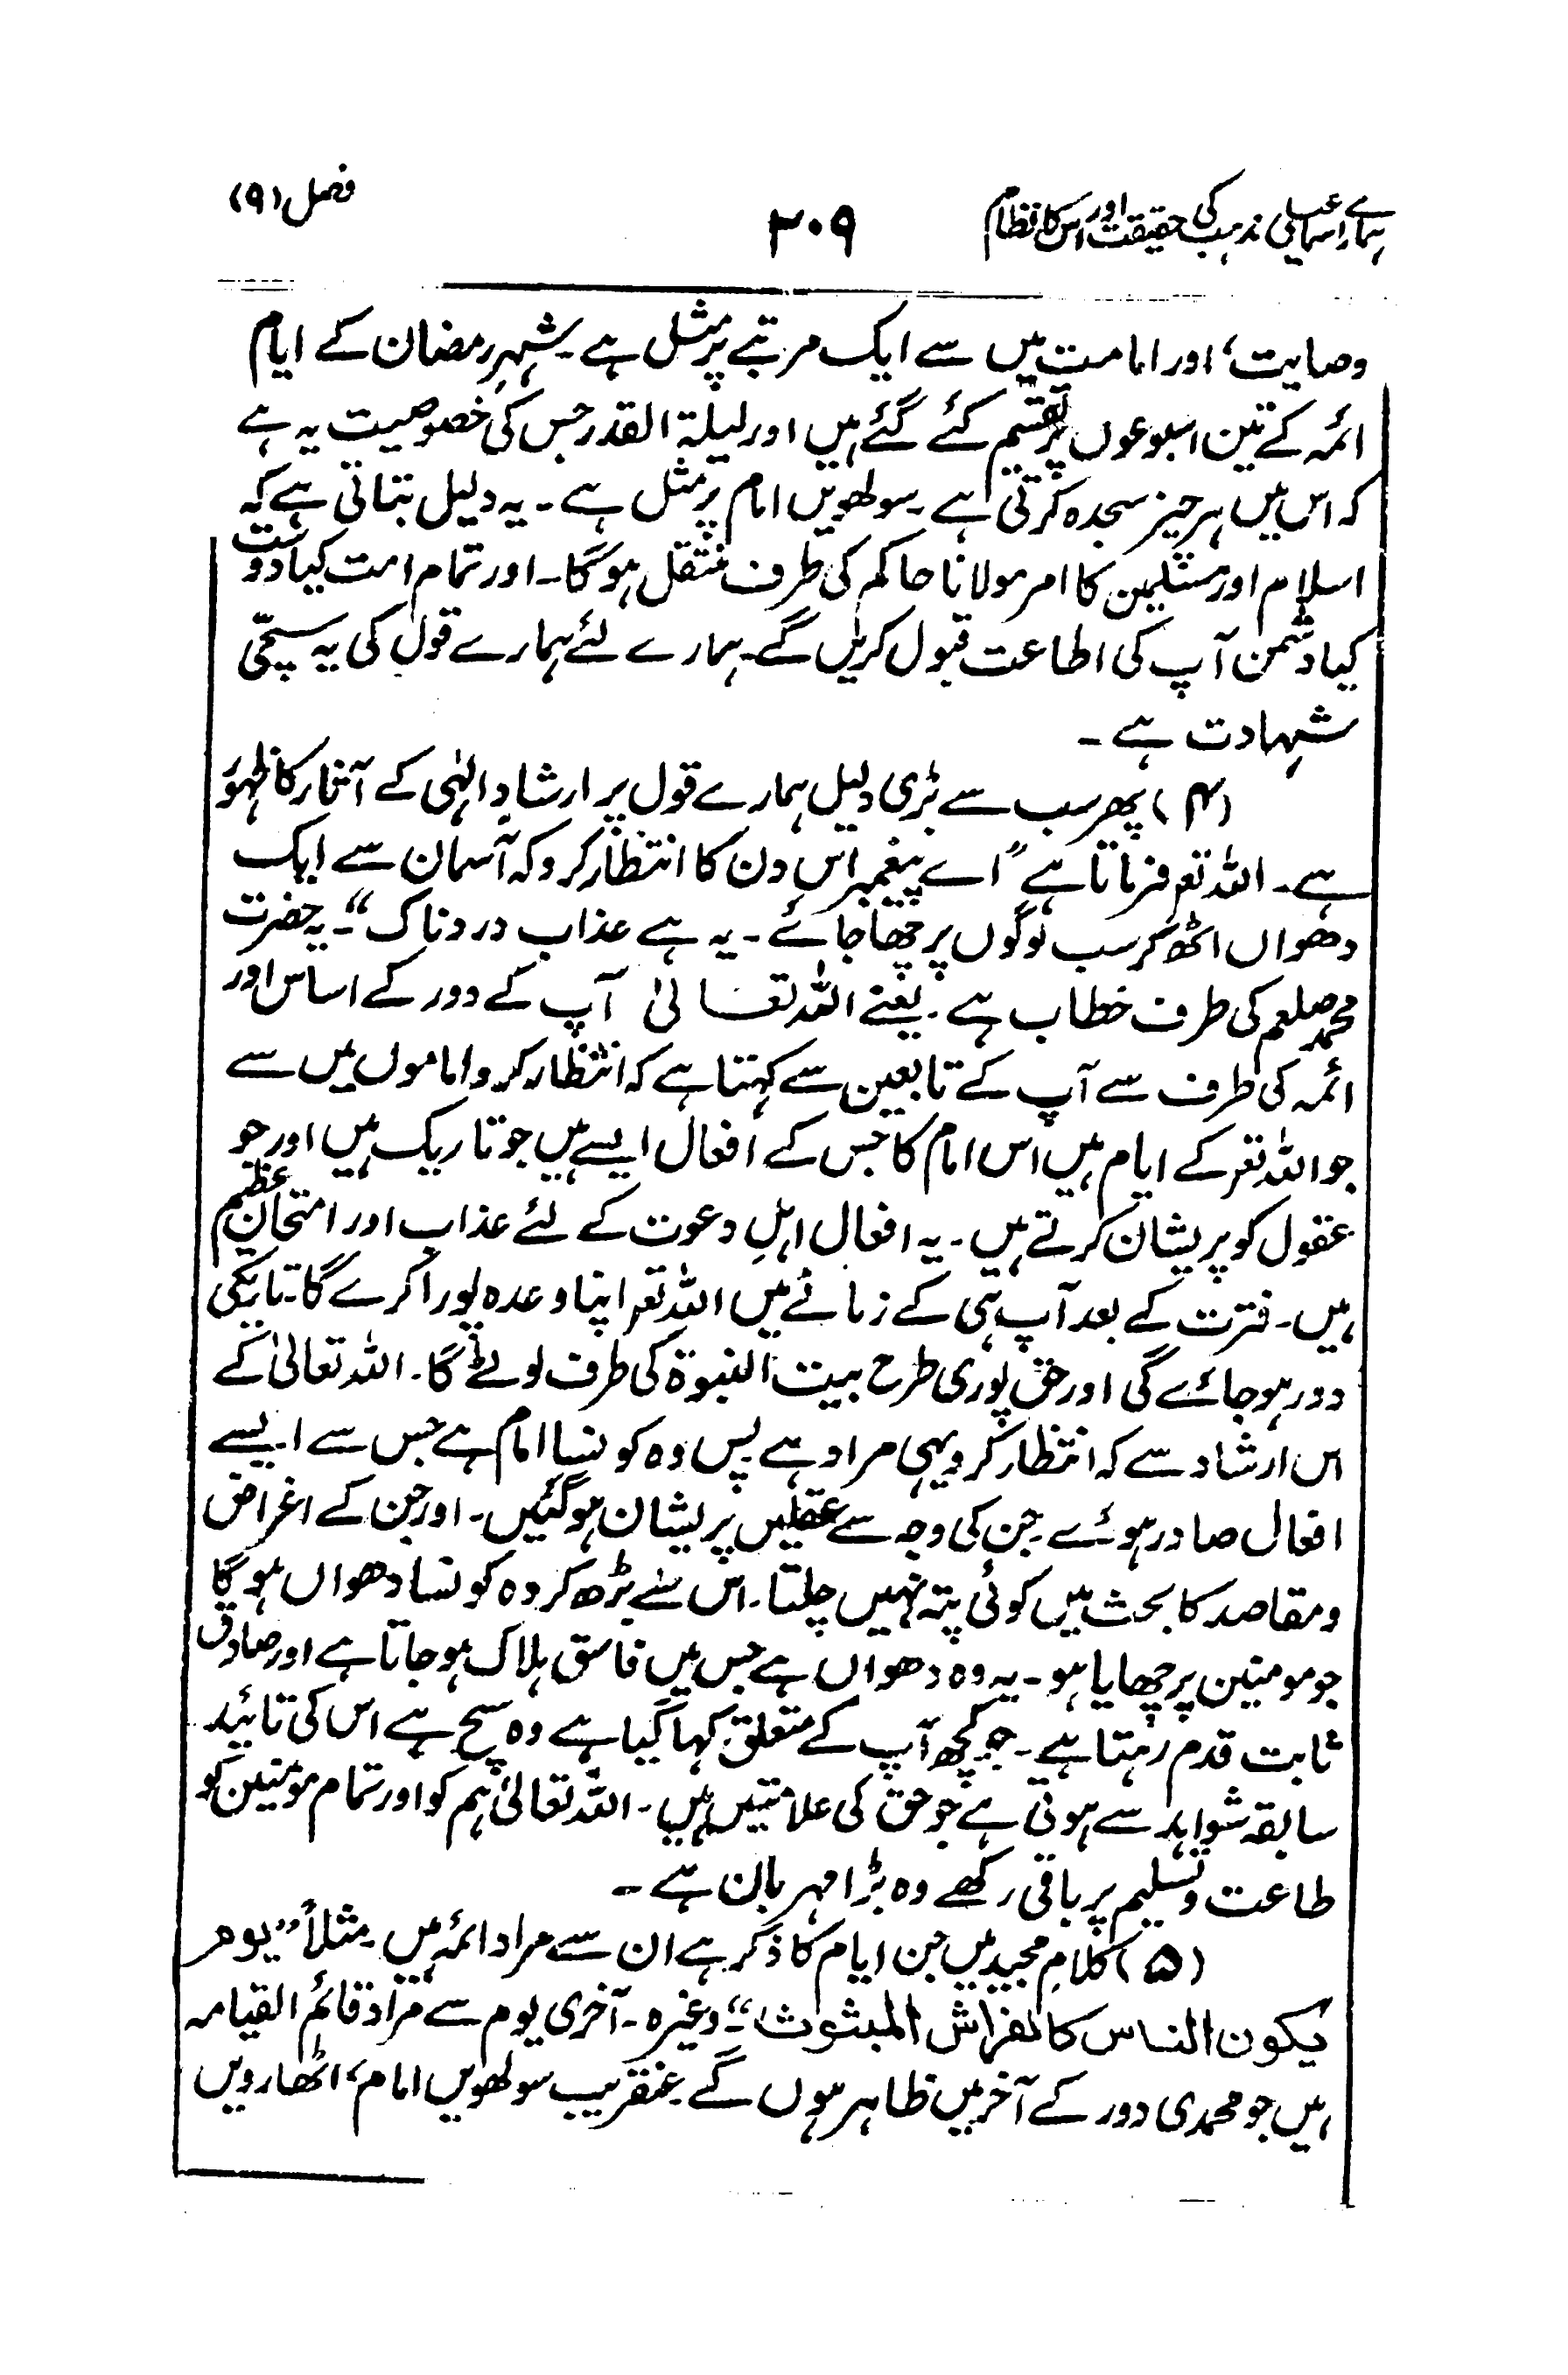 ہمارے اسماعیلی مذہب کی حقیقت اور اس کا نظام
۳۰۹
فصل (۹)
وصایت، اور امامت میں سے ایک مرتبے پر مثل ہے۔ شہرِ رمضان کے ایام
ائمہ کے تین اسبوعوں پر تقسیم کئے گئے ہیں اور لیلۃ القدر جس کی خصوصیت یہ ہے
کہ اس میں ہر چیز سجدہ کرتی ہے۔ سولھویں امام پر مثل ہے۔ یہ دلیل بتاتی ہے کہ
اسلام اور مسلمین کا امر مولانا حاکم کی طرف منتقل ہوگا۔ اور تمام امت کیا دوست
کیا دشمن آپ کی اطاعت قبول کریں گے۔ ہمارے لئے ہمارے قول کی یہ سچّی
شہادت ہے ۔
(۴) پھر سب سے بڑی دلیل ہمارے قول پر ارشادِ الٰہی کے آثار کا ظہور
ہے۔ اللہ تعہ فرماتا ہے ”اے پیغمبر اس دن کا انتظار کرو کہ آسمان سے ایک
دھواں اٹھ کر سب لوگوں پر چھا جائے۔ یہ ہے عذاب دردناک“۔ یہ حضرت
محمد صلعم کی طرف خطاب ہے۔ یعنے اللہ تعالیٰ آپ کے دور کے اساس اور
ائمہ کی طرف سے آپ کے تابعین سے کہتا ہے کہ انتظار کرو اماموں میں سے
جو اللہ تعہ کے ایام ہیں اس امام کا جس کے افعال ایسے ہیں جو تاریک ہیں اور جو
عقول کو پریشان کرتے ہیں۔ یہ افعال اہلِ دعوت کے لئے عذاب اور امتحانِ عظیم
ہیں۔ فترت کے بعد آپ ہی کے زمانے میں اللہ تعہ اپنا وعدہ پورا کرے گا۔ تاریکی
دور ہو جائے گی اور حق پوری طرح بیت النبوۃ کی طرف لوٹے گا۔ اللہ تعالیٰ کے
اس ارشاد سے کہ انتظار کرو یہی مراد ہے پس وہ کونسا امام ہے جس سے ایسے
افعال صادر ہوئے جن کی وجہ سے عقلیں پریشان ہوگئیں۔ اور جن کے اغراض
ومقاصد کا بحث میں کوئی پتہ نہیں چلتا۔ اس سے بڑھ کر وہ کونسا دھواں ہوگا
جو مومنین پر چھایا ہو۔ یہ وہ دھواں ہے جس میں فاسق ہلاک ہو جاتا ہے اور صادق
ثابت قدم رہتا ہے۔ جو کچھ آپ کے متعلق کہا گیا ہے وہ سچ ہے اس کی تائید
سابقہ شواہد سے ہوتی ہے جو حق کی علامتیں ہیں۔ اللہ تعالیٰ ہم کو اور تمام مومنین کو
طاعت وتسلیم پر باقی رکھے وہ بڑا مہربان ہے ۔
(۵) کلامِ مجید میں جن ایام کا ذکر ہے ان سے مراد ائمہ ہیں۔ مثلاً ”یوم
یکون الناس کالفراش المبثوث“۔ وغیرہ۔ آخری یوم سے مراد قائم القیامہ
ہیں جو محمدی دور کے آخر میں ظاہر ہوں گے۔ عنقریب سولھویں امام، اٹھارویں